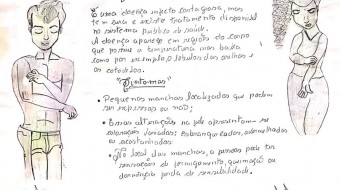 É uma doença infecto contagiosa, mas
tem cura e existe tratamento disponível
no sistema público de saúde.
A doença aparece em regiões do corpo
que possui a temperatura mais baixa
como por exemplo o lóbulos das orelhas os
os cotovelos.
"Sintomas"
• Pequenas manchas localizadas que podem
ser espessas ou não;
• Essas alterações na pele apresentam-se
coloração variadas: Esbranquiçadas, avermelhadas
ou acastanhadas.
• No local das manchas, a pessoa pode ter
sensação de formigamento, queimação ou
dormência perda de sensibilidade.